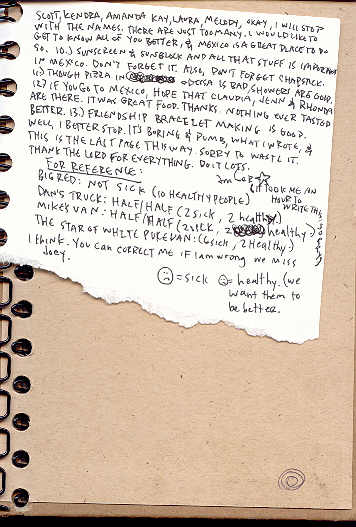 SCOTT, KENDRA, AMANDA KAY, LAURA, MELODY, OKAY, I WILL STOP
WITH THE NAMES. THERE ARE JUST TOO MANY. I WOULD LIKE TO
GET TO KNOW ALL OF YOU BETTER, & MEXICO IS A GREAT PLACE TO DO
SO. 10.) SUNSCREEN & SUNBLOCK AND ALL THAT STUFF IS IMPORTANT
IN MEXICO. DON'T FORGET IT. ALSO, DON'T FORGET CHAPSTICK.
11.) THOUGH PIZZA IN ODESSA IS BAD, SHOWERS ARE GOOD.
12.) IF YOU GO TO MEXICO, HOPE THAT CLAUDIA, JENN & RHONDA
ARE THERE. IT WAS GREAT FOOD. THANKS. NOTHING EVER TASTED
BETTER. 13.) FRIENDSHIP BRACELET MAKING IS GOOD.
WELL, I BETTER STOP. IT'S BORING & DUMB, WHAT I WROTE, &
THIS IS THE LAST PAGE THIS WAY SORRY TO WASTE IT.
THANK THE LORD FOR EVERYTHING. DO IT LOTS.
(IT TOOK ME AN
HOUR TO
WRITE THIS
FOR REFERENCE:
BIG RED: NOT SICK (10 HEALTHY PEOPLE)
DAN'S TRUCK: HALF/HALF (2 SICK, 2 healthy.)
MIKE'S VAN: HALF/HALF (2 SICK, 2 healthy.)
THE STAR OF WHITE PUKE VAN: (6 sick, 2 Healthy.)
I THINK. YOU CAN CORRECT ME IF I AM WRONG WE MISS
JOEY.
= sick = healthy. (we
want them to
be better.